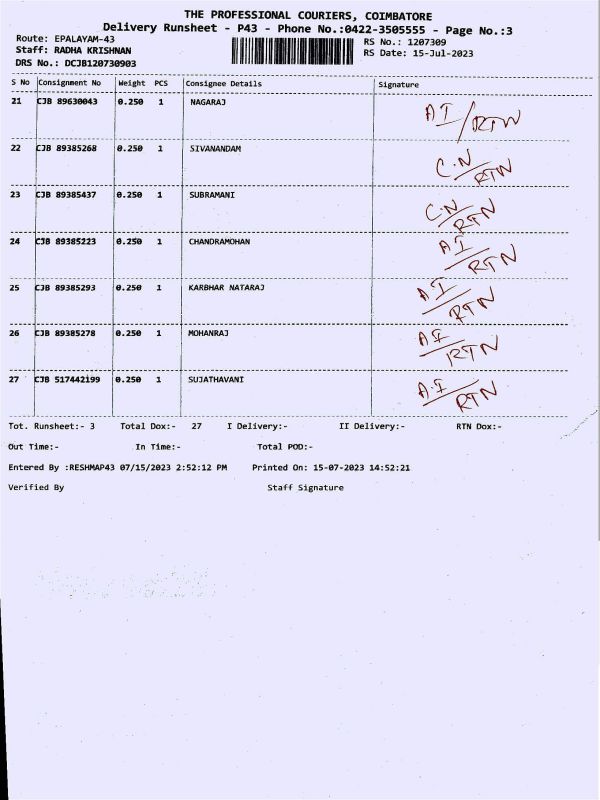 THE PROFESSIONAL COURIERS, COIMBATORE
Delivery Runsheet - P43 - Phone No.:0422-3505555 - Page No.:3
Route: EPALAYAM-43 RS No.: 1207309
Staff: RADHA KRISHNAN RS Date: 15-Jul-2023
DRS No.: DCJB120730903
S No Consignment No Weight PCS Consignee Details Signature
21 CJB 89630043 0.250 1 NAGARAJ AI/RTN
22 CJB 89385268 0.250 1 SIVANANDAM C.N/RTN
23 CJB 89385437 0.250 1 SUBRAMANI C.N/RTN
24 CJB 89385223 0.250 1 CHANDRAMOHAN AI/RTN
25 CJB 89385293 0.250 1 KARBHAR NATARAJ AI/RTN
26 CJB 89385278 0.250 1 MOHANRAJ AI/RTN
27 CJB 517442199 0.250 1 SUJATHAVANI A.I/RTN
Tot. Runsheet:- 3 Total Dox:- 27 I Delivery:- II Delivery:- RTN Dox:-
Out Time:- In Time:- Total POD:-
Entered By :RESHMAP43 07/15/2023 2:52:12 PM Printed On: 15-07-2023 14:52:21
Verified By Staff Signature